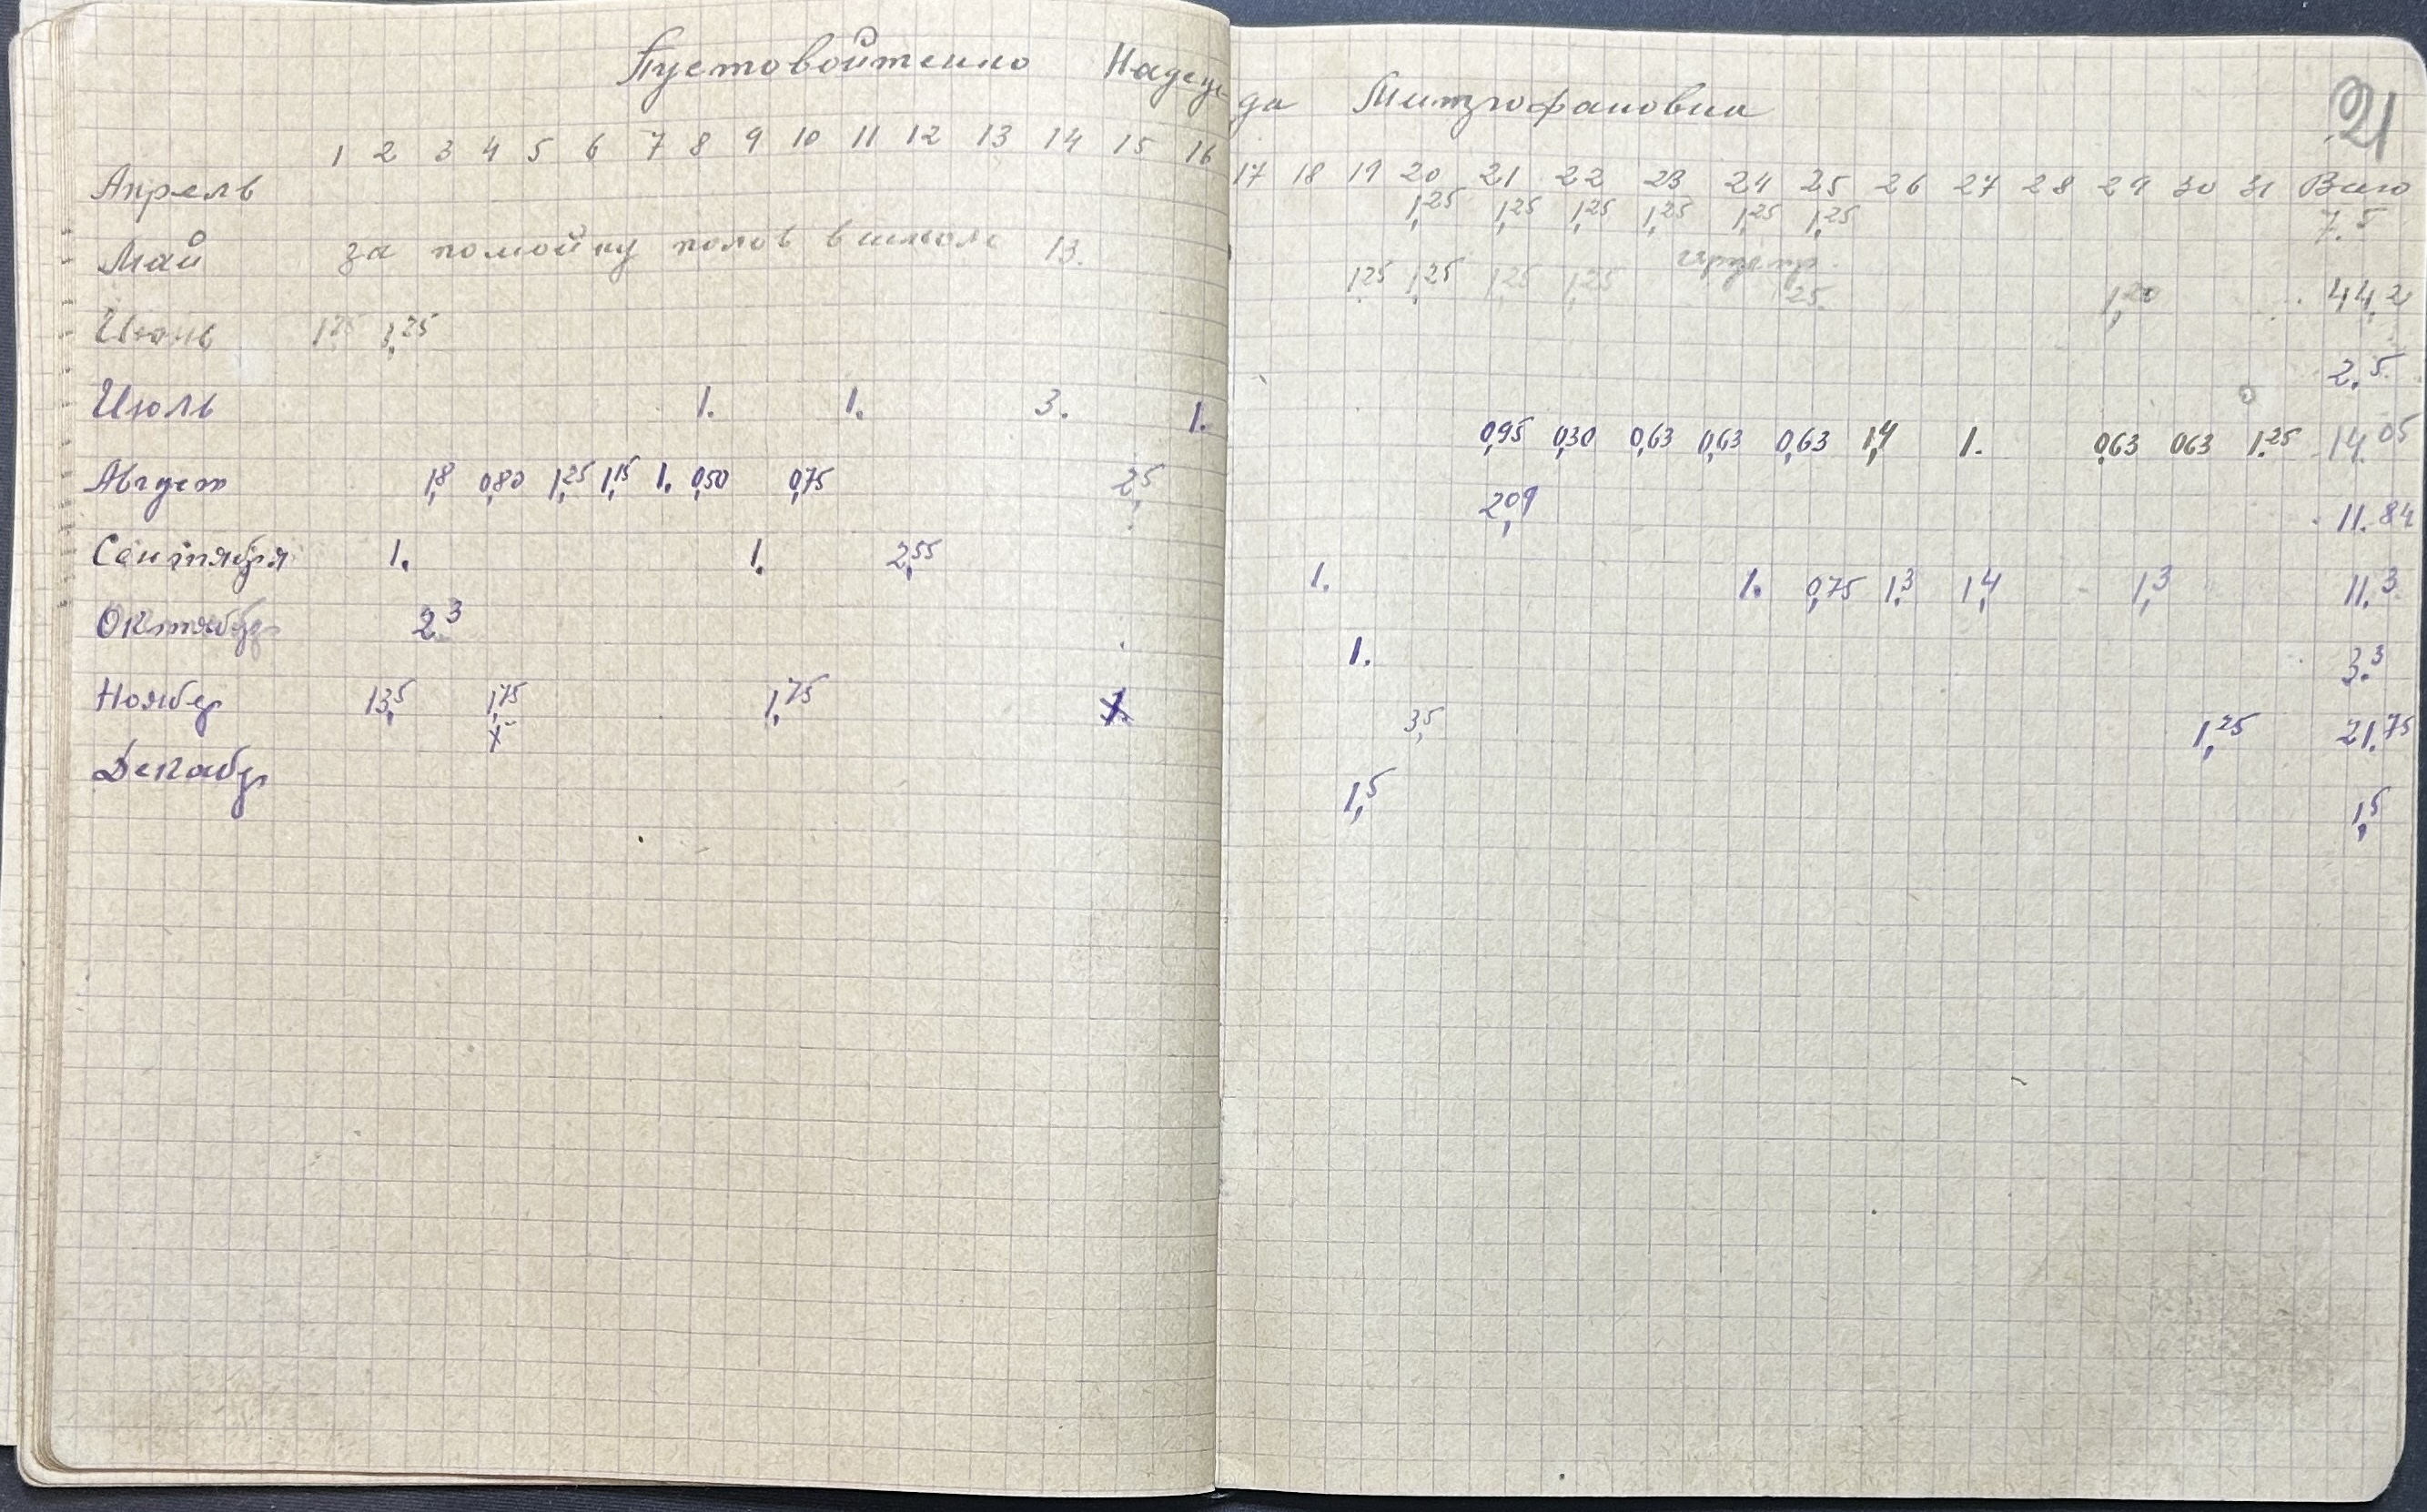 Пустовойтенко Надежда Митрофановна
21
1 2 3 4 5 6 7 8 9 10 11 12 13 14 15 16 17 18 19 20 21 22 23 24 25 26 27 28 29 30 31 Всего
Апрель 1,25 1,25 1,25 1,25 1,25 1,25 7.5
Май за помойку полов в школе 13. 1,25 1,25 1,25 1,25 25 1,20 44,2
Июнь 1,25 1,25 2.5
Июль 1. 1. 3. 1. 0,95 0,30 0,63 0,63 0,63 1,4 1. 0,63 063 1.25 14.05
Август 1,8 0,80 1,25 1,15 1. 0,50 0,75 2,5 2,09 11.84
Сентября 1. 1. 2,55 1. 1. 0,75 1,3 1,4 1,3 11.3
Октябр 2,3 1. 3.3
Ноябр 13,5 1,75 1,75 3,5 1,25 21.75
х
Декабр 1,5 1,5